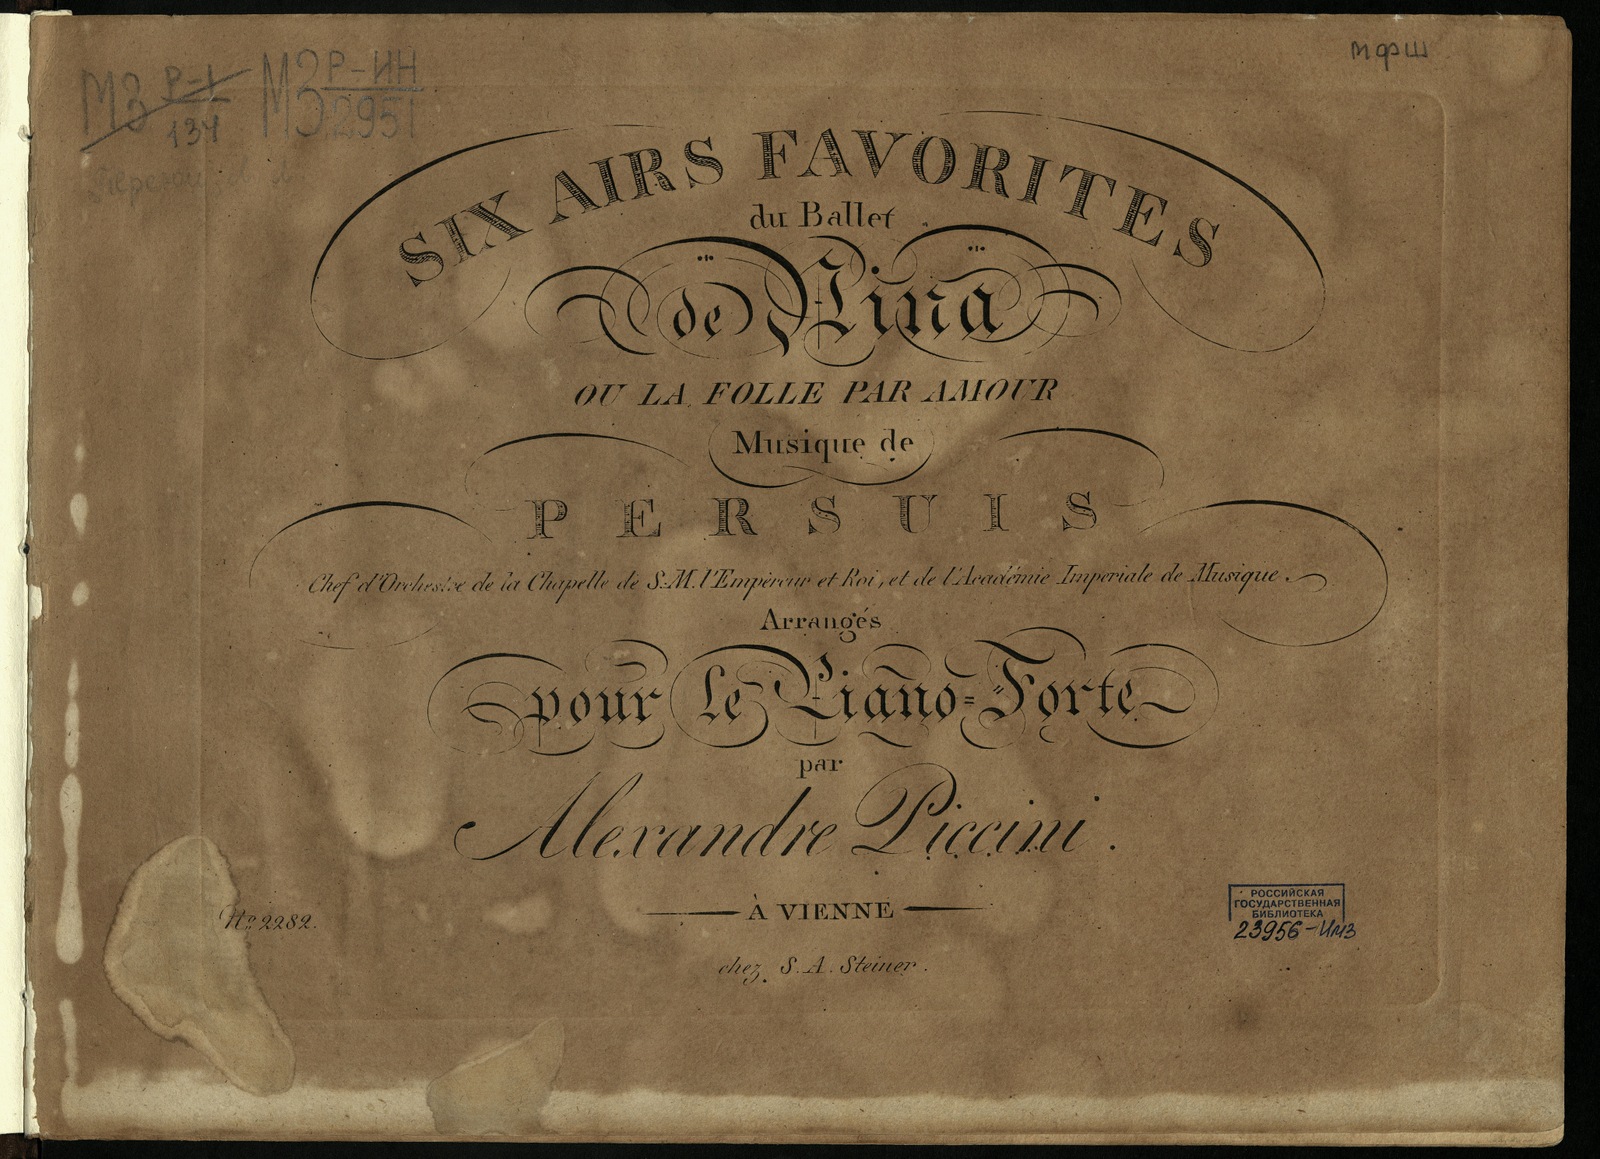 МЗ Р-1
134
МЗ Р-ИН
2951
МФШ
SIX AIRS FAVORITES
du Ballet
de Nina
OU LA FOLLE PAR AMOUR
Musique de
PERSUIS
Chef d'Orchestre de la Chapelle de S. M. l'Empereur et Roi, et de l'Académie Imperiale de Musique.
Arrangés
pour le Piano=Forte
par
Alexandre Piccini.
À VIENNE
No. 2282.
chez S. A. Steiner.
РОССИЙСКАЯ
ГОСУДАРСТВЕННАЯ
БИБЛИОТЕКА
23956-ИМЗ